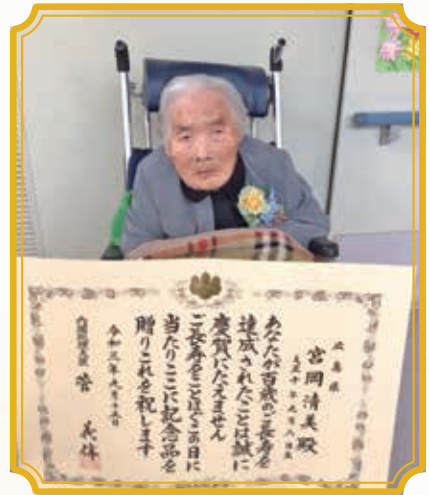 広島県
宮岡清美殿
大正十年九月八日生
あなたが百歳のご長寿を
達成されたことは誠に
慶賀にたえません
ご長寿をことほぐこの日に
当たりここに記念品を
贈りこれを祝します
令和三年九月十五日
内閣総理大臣 菅 義偉